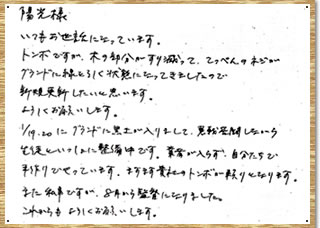 陽光様
いつもお世話になっています。
トンボですが、木の部分がすり減って、てっぺんのネジが
グランドに線をひく状態になってきましたので
新規更新したいと思います。
よろしくお願いします。
1/19.20にグランドに黒土が入りまして、しながら
生徒といっしょに整備中です。業者が入らず、自分たちで
手作りでやっています。ますます貴社のトンボが頼りとなります。
また私事ですが、8月から監督になりました。
これからもよろしくお願いします。